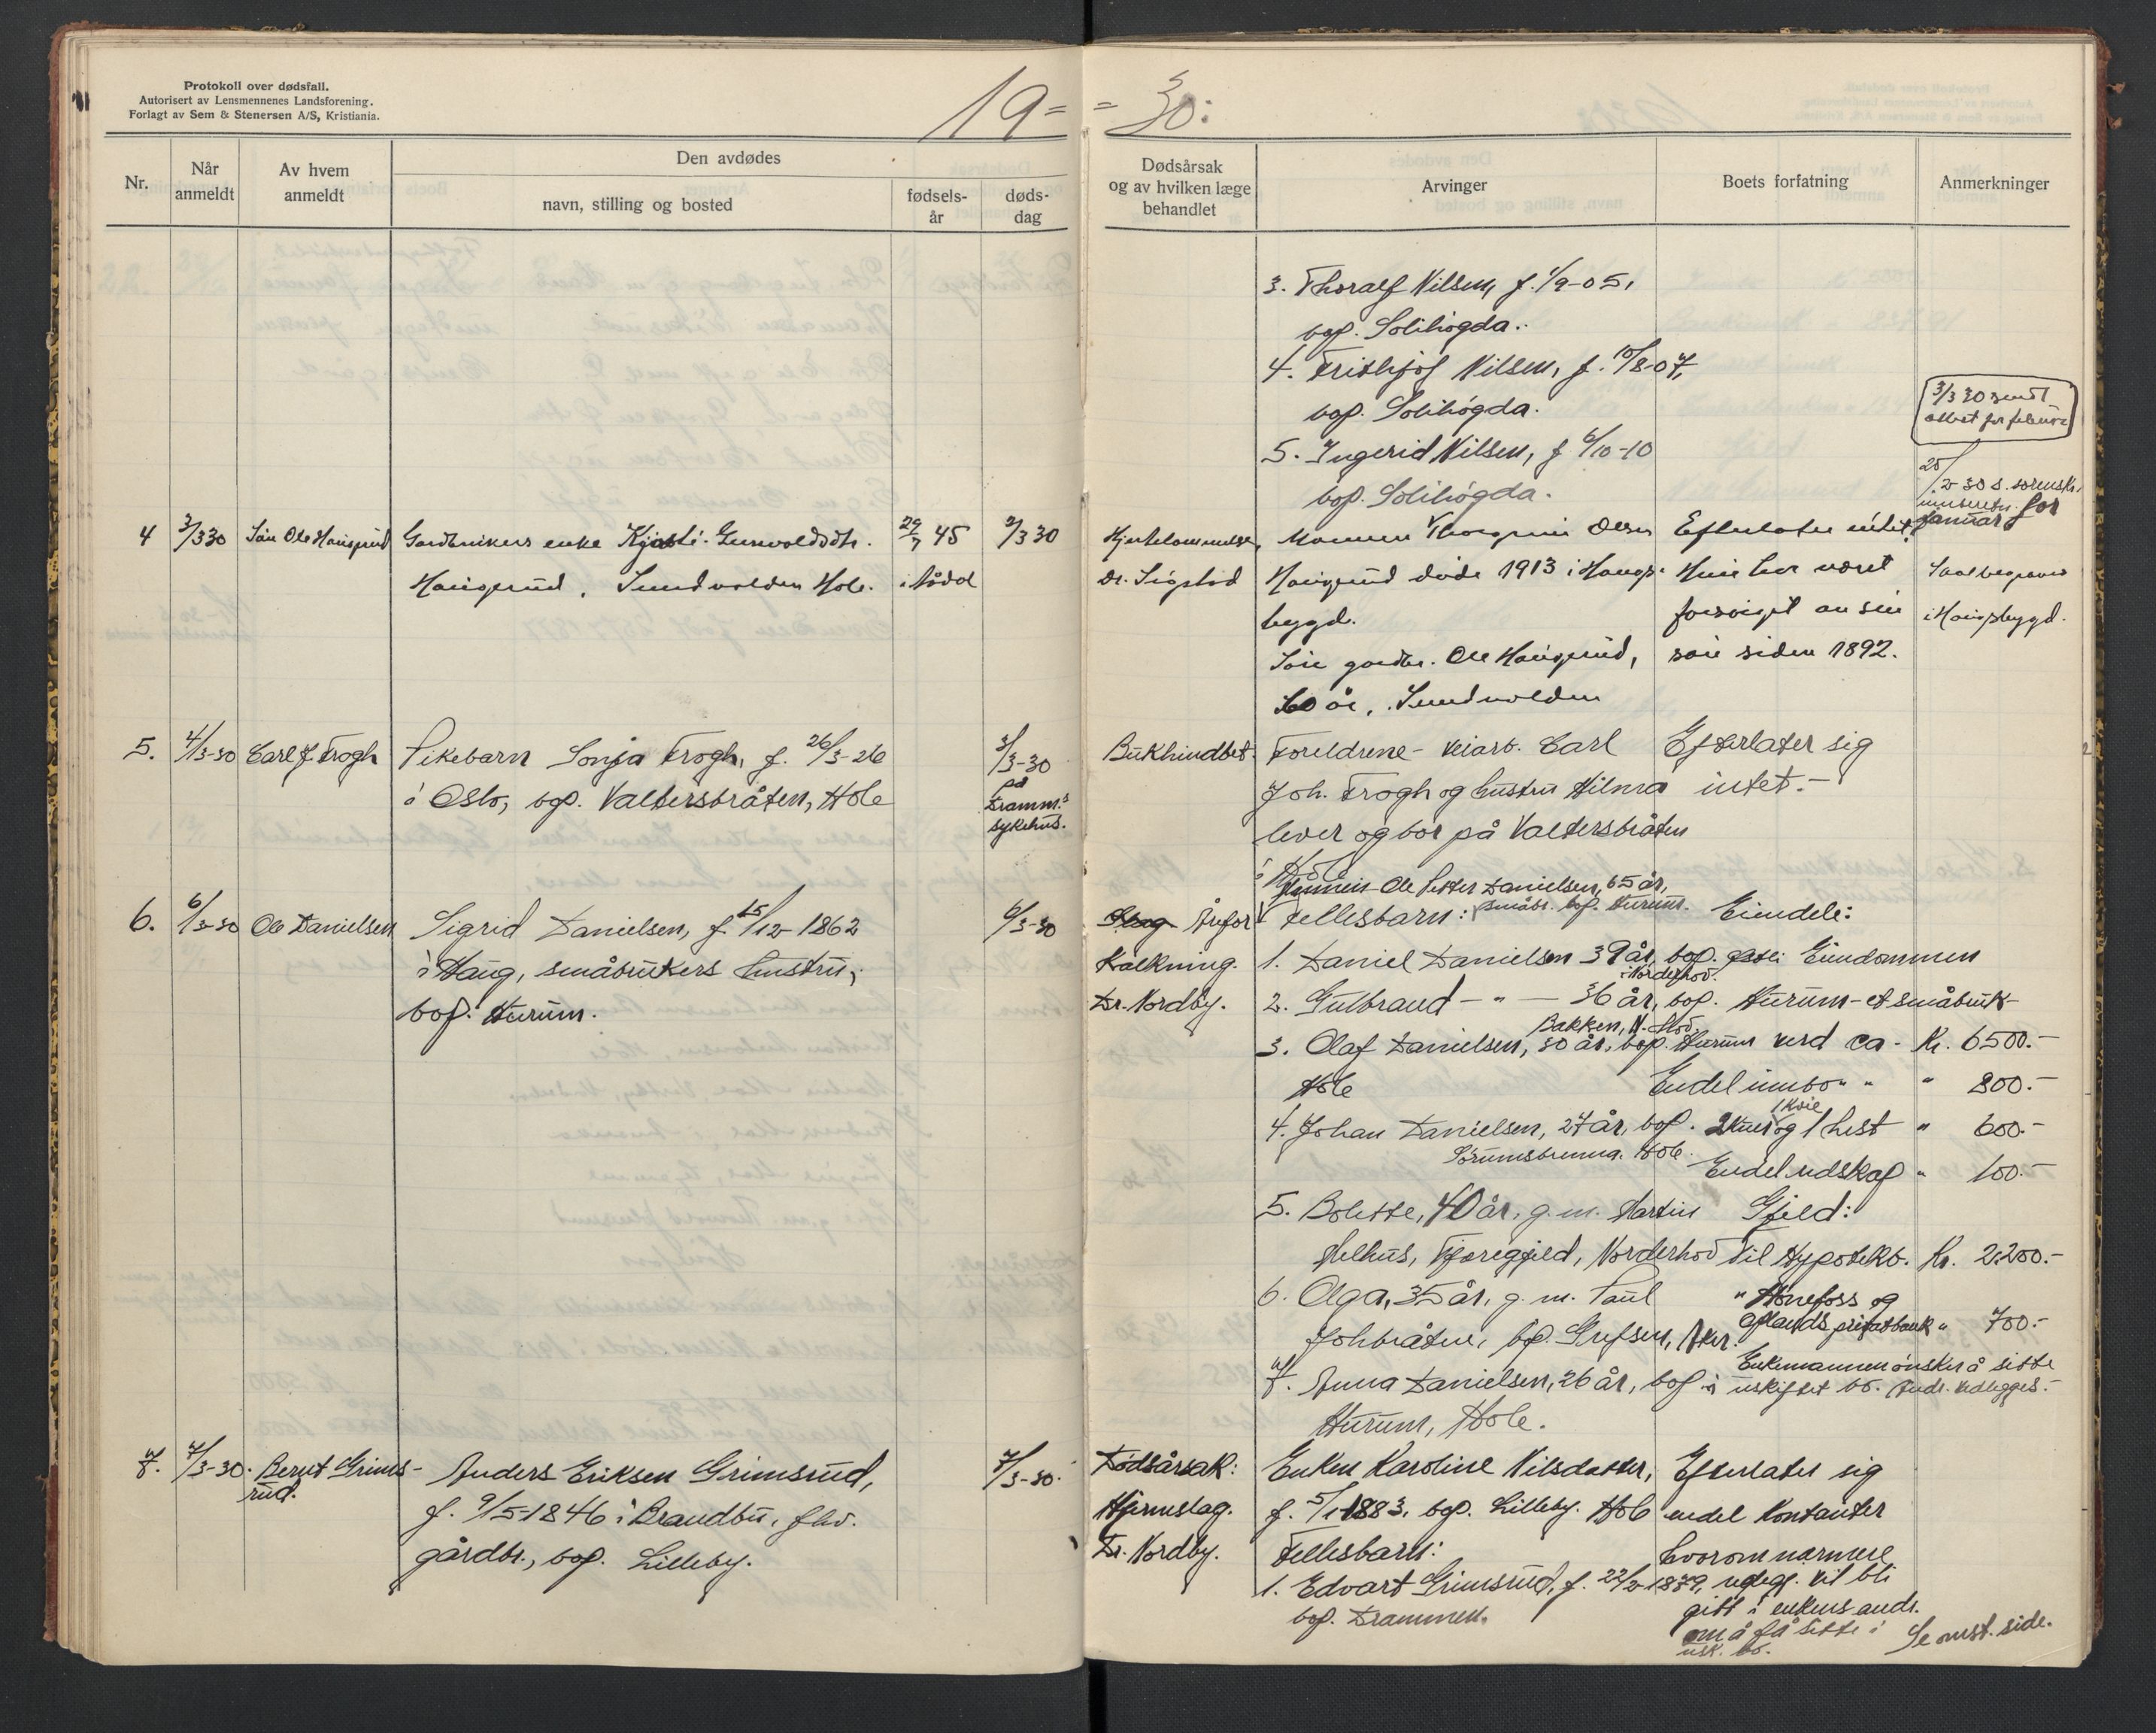 Protokoll over dødsfall.
Autorisert av Lensmennenes Landsforening.
Forlagt av Sem & Stenersen A/S, Kristiania.
19= =30:
Nr.
Når anmeldt
Av hvem anmeldt
Den avdødes
navn, stilling og bosted
fødsels-år
døds-dag
Dødsårsak og av hvilken læge behandlet
Arvinger
Boets forfatning
Anmerkninger
3. Thoralf Nilsen, f. 1/9-05,
bop. Solihøgda.
4. Frithjof Nilsen, f. 10/8-07,
bop. Solihøgda.
5. Ingerid Nilsen, f 6/10-10
bop. Solihøgda.
3/3 30 sendt
25/2-30 s. sorenskr.
for
januar
4 3/3 30 Søn Ole Haugerud Gardbrukers enke Kjersti Gunvoldsdtr. 29/7 45 2/3 30
Haugerud, Sundvolden Hole. i Ådal
Hjertelammelse,
Dr. Sigstad
Mannen Thorgrim Olsen
Haugerud døde 1913 i Haugs-
bygd.
Søn gardbr. Ole Haugerud,
60 år, Sundvolden
Efterlater intet.
Hun har været
forsørget av sin
søn siden 1892.
Skal begraves
i Haugsbygd.
5. 4/3-30 Carl J. Trogh Pikebarn Sonja Trogh, f. 26/3-26 3/3-30
i Oslo, bop. Valtersbråten, Hole på
Dramm.s
sykehus.
Bukhindbet.
Foreldrene - veiarb. Carl
Joh. Trogh og hustru Hilma
lever og bor på Valtersbråten
i Hole
Efterlater sig
intet.-
6. 6/3-30 Ole Danielsen Sigrid Danielsen, f. 15/12-1862 6/3-30
i Haug, småbrukers hustru,
bop. Hurum.
Årefor
kalkning.
Dr. Nordby.
Ole Petter Danielsen, 65 år,
småbr. bop. Hurum.
Fellesbarn:
1. Daniel Danielsen 39 år, bop.
i Norderhov.
2. Gulbrand - " - 36 år, bop.
Bakken, N.hov.
3. Olaf Danielsen, 30 år, bop. Hurum
Hole
4. Johan Danielsen, 27 år, bop.
Hole.
5. Bolette, 40 år, g.m. Martin
Norderhov
6. Olga, 35 år, g.m. Paul
bop. Grefsen, Aker.
7. Anna Danielsen, 26 år, bop
Hurum, Hole.
Eiendele:
Eiendommen
Hurum - et småbruk
verd ca - Kr. 6500.-
Endel innbo " " " 800.-
1 kvie
2 kuer og 1 hest " 600.-
Endel redskap " 100.-
Gjeld:
Til Hypotekb. Kr. 2.200.-
" Hønefoss og
oplands privatbank " 700.-
Enkemannen ønsker å sitte
i uskiftet bo. Andr. vedlegges.-
7. 7/3-30. Bernt Grims- Anders Eriksen Grimsrud, 7/3-30.
rud. f. 9/5-1846 i Brandbu, fhv.
gårdbr., bop. Lilleby.
Dødsårsak:
Hjerneslag.
Dr. Nordby.
Enken Karoline Nilsdatter,
f. 5/1-1883, bop. Lilleby. Hole
Fellesbarn:
1. Edvart Grimsrud, f. 22/2-1879,
bop. Drammen.
Efterlater sig
endel kontanter
hvorom nærmere
vil bli
gitt i enkens andr.
om å få sitte i
usk. bo.
Se omst. side.